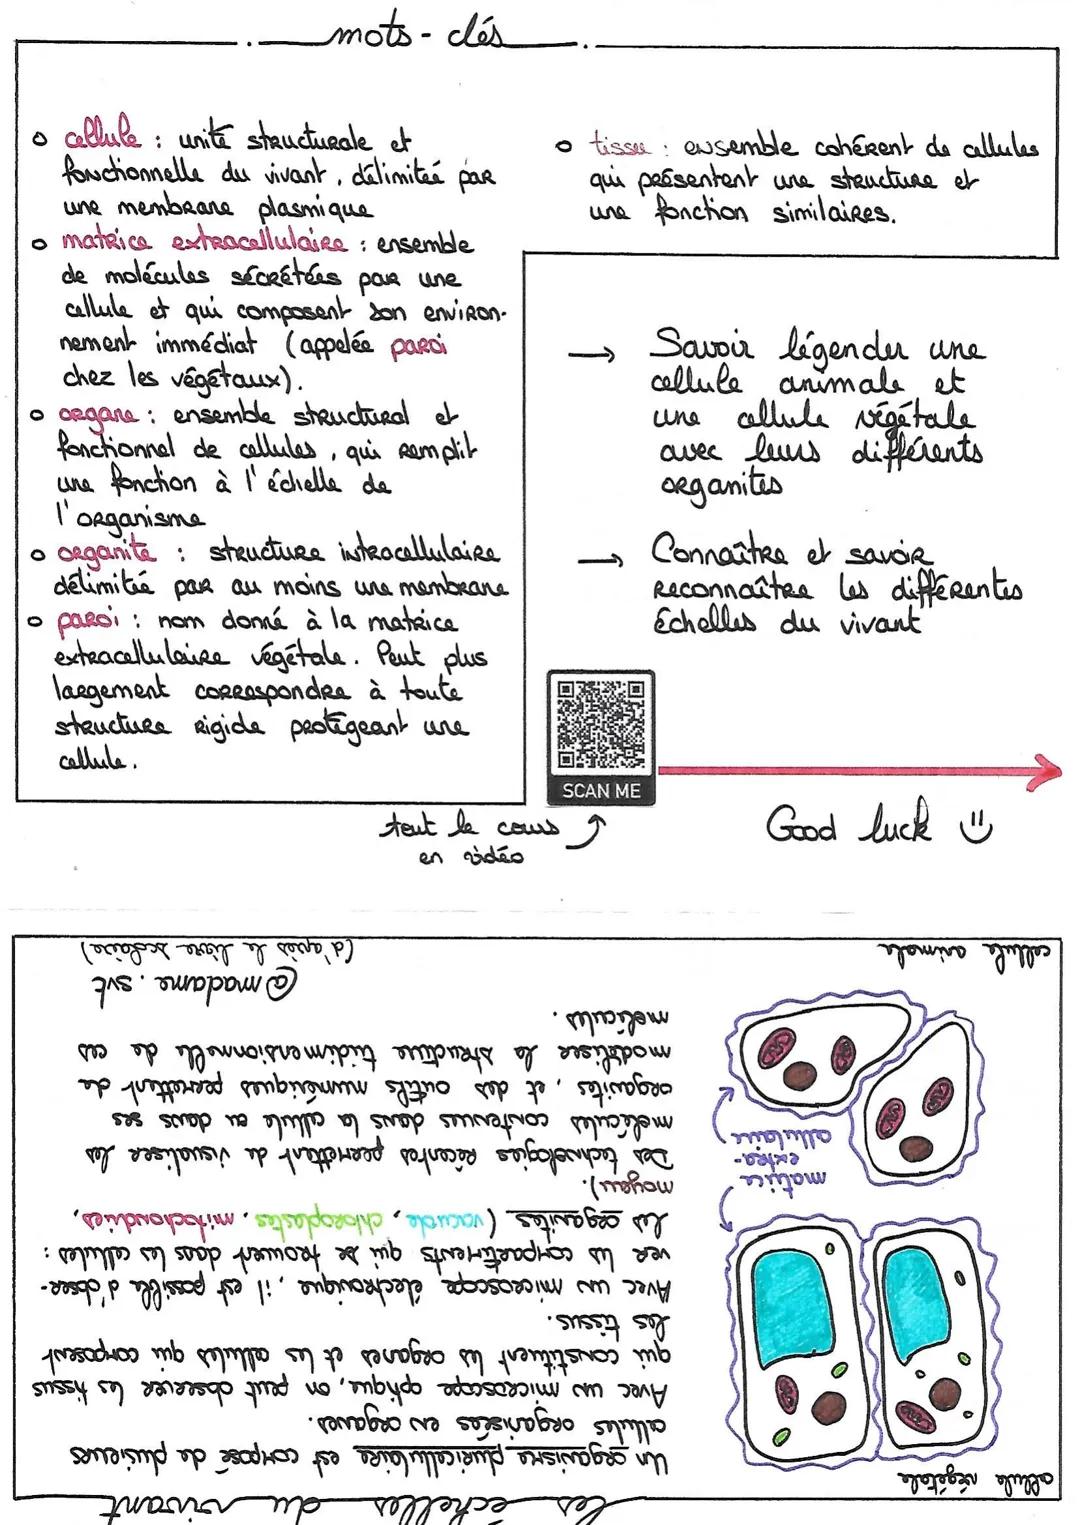 mots-clés
o cellule : unité structurale et
fonctionnelle du vivant, délimitée par
une membrane plasmique
o matrice extracellulaire : ensemble
de molécules sécrétées par une
cellule et qui composent son environ-
nement immédiat (appelée paroi
chez les végétaux).
o organe : ensemble structural et
fonctionnel de cellules, qui remplit
une fonction à l'échelle de
l'organisme
o organite : structure intracellulaire
délimitée par au moins une membrane
o paroi : nom donné à la matrice
extracellulaire végétale. Peut plus
largement correspondre à toute
structure rigide protégeant une
cellule.
o tissu : ensemble cohérent de cellules
qui présentent une structure et
une fonction similaires.
→ Savoir légender une
cellule animale et
une cellule végétale
avec leurs différents
organites
→ Connaître et savoir
reconnaître les différentes
échelles du vivant
SCAN ME
tout le cours
en vidéo
Good luck
les échelles du vivant
Un organisme pluricellulaire est composé de plusieurs
cellules organisées en organes.
Avec un microscope optique, on peut observer les tissus
qui constituent les organes et les cellules qui composent
les tissus.
Avec un microscope électronique, il est possible d'obser-
ver les compartiments qui se trouvent dans les cellules :
les organites (vacuole, chloroplastes, mitochondries,
noyau).
Des technologies récentes permettent de visualiser les
molécules contenues dans la cellule ou dans ses
organites, et des outils numériques permettent de
modéliser la structure tridimensionnelle de ces
molécules.
@madame.svt
(d'après le livre scolaire)
cellule végétale
matrice
extra-
cellulaire
cellule animale